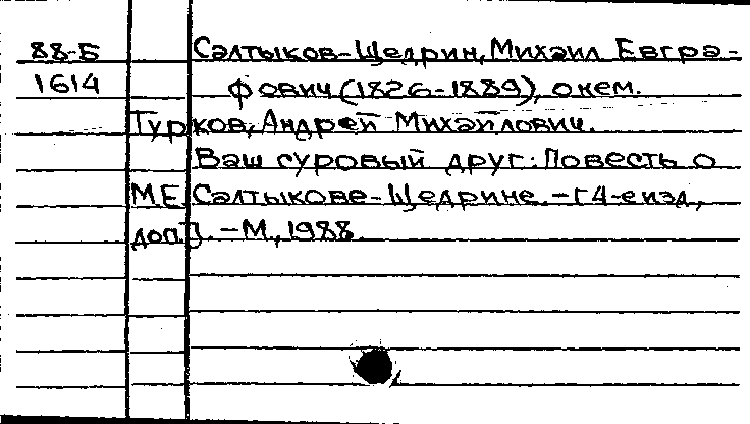 88-Б Салтыков-Щедрин, Михаил Евгра-
1614 фович (1826-1889), о нем.
Турков, Андрей Михайлович.
Ваш суровый друг: Повесть о
М.Е. Салтыкове-Щедрине. - [4-е изд.,
доп.]. - М., 1988.